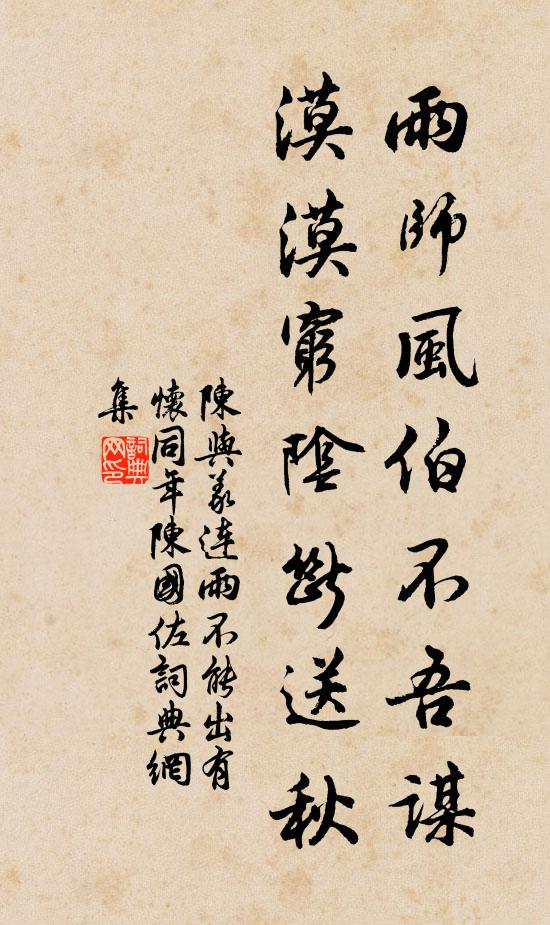 雨師風伯不吾謀
漠漠窮陰斷送秋
陳與義連雨不能出有
懷同年陳國佐詞典網
集
詞典網印